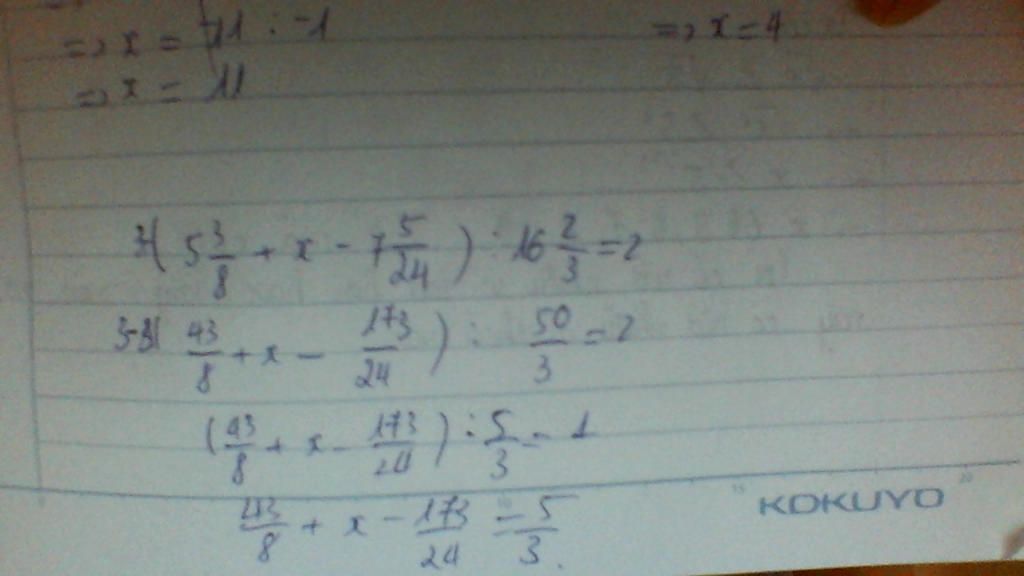 => x = 11 : -1
=> x = 11
=> x = 4
( 5 3/8 + x - 7 5/24 ) : 16 2/3 = 2
43/8 + x - 173/24 ) : 50/3 = 2
( 43/8 + x - 173/24 ) : 5/3 = 1
43/8 + x - 173/24 = 5/3.
KOKUYO